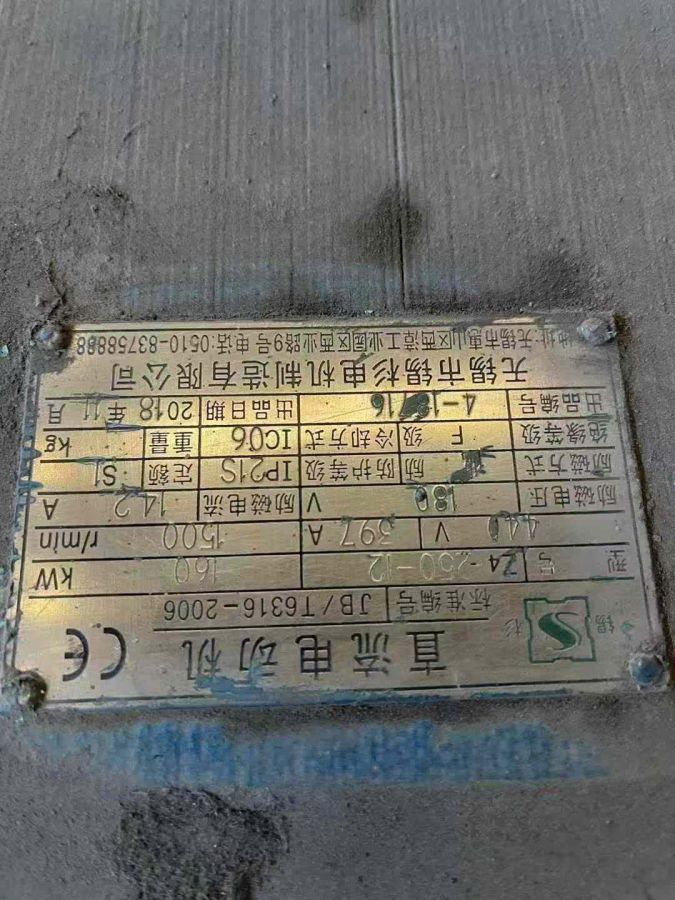 锡 S 杉
直流电动机 CE
标准编号 JB/T6316-2006
型号 Z4-250-12 160 kW
440 V 397 A 1500 r/min
励磁电压 180 V 励磁电流 14.2 A
励磁方式 励 防护等级 IP21S 定额 S1
绝缘等级 F 级 冷却方式 IC06 重量 kg
出品编号 出品日期 2018年11月
无锡市锡杉电机制造有限公司
地址:无锡市惠山区西漳工业园区西业路9号 电话:0510-83758888